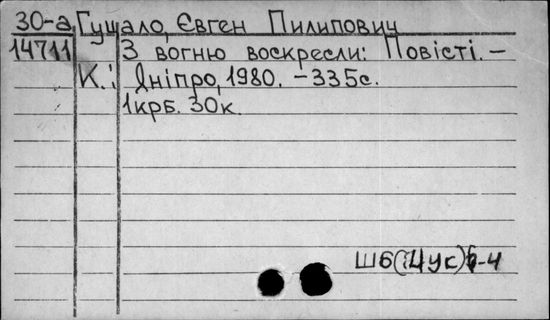 30-а Гуцало, Євген Пилипович
14711 З вогню воскресли: Повісті. –
К.: Дніпро, 1980. – 335с.
1крб. 30к.
Ш6(4Ук)6-4